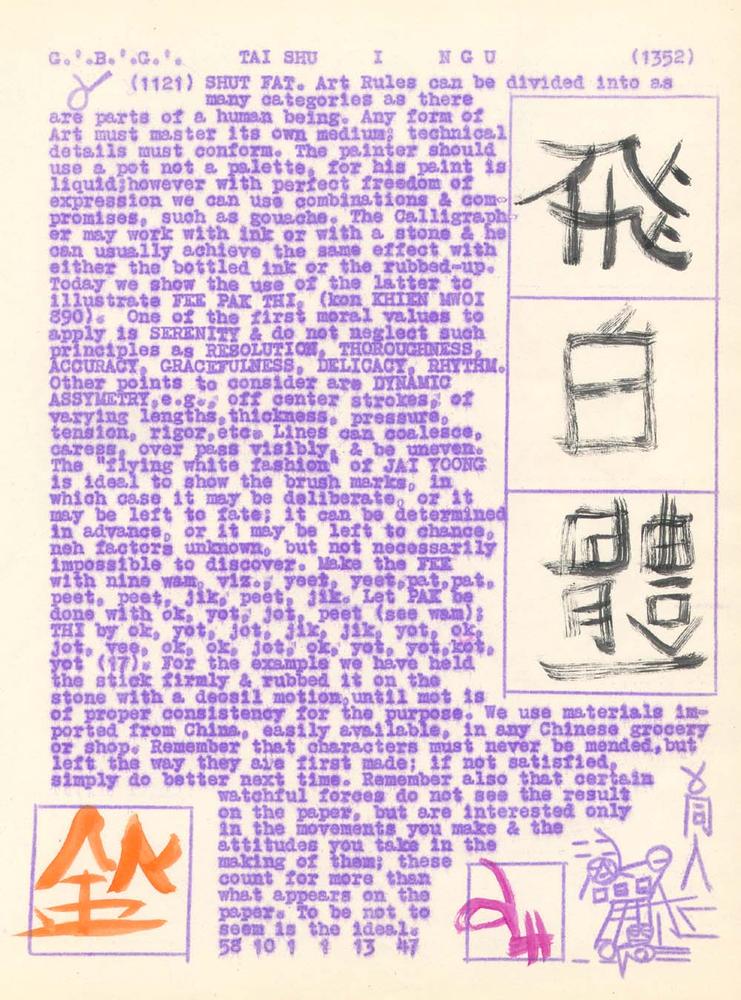 G.'.B.'.G.'. TAI SHU I N G U (1352)
(1121) SHUT FAT. Art Rules can be divided into as
many categories as there
are parts of a human being. Any form of
Art must master its own medium; technical
details must conform. The painter should
use a pot not a palette, for his paint is
liquid;however with perfect freedom of
expression we can use combinations & com-
promises, such as gouache. The Calligraph-
er may work with ink or with a stone & he
can usually achieve the same effect with
either the bottled ink or the rubbed-up.
Today we show the use of the latter to
illustrate FEE PAK THI, (kon KHIEN MWOI
890). One of the first moral values to
apply is SERENITY & do not neglect such
principles as RESOLUTION, THOROUGHNESS,
ACCURACY, GRACEFULNESS, DELICACY, RHYTHM.
Other points to consider are DYNAMIC
ASSYMETRY,e.g., off center strokes, of
varying lengths,thickness, pressure,
tension, rigor,etc. Lines can coalesce,
caress, over pass visibly, & be uneven.
The "flying white fashion" of JAI YOONG
is ideal to show the brush marks, in
which case it may be deliberate, or it
may be left to fate; it can be determined
in advance, or it may be left to chance,
neh factors unknown, but not necessarily
impossible to discover. Make the FEE
with nine wam, viz., yeet, yeet,pat,pat,
peet, peet, jik, peet, jik. Let PAK be
done with ok, yot, jot, peet (see wam);
THI by ok, yot, jot, jik, jik, yot, ok,
jot, yee, ok, ok, jot, ok, yot, yot,kot,
yot (17). For the example we have held
the stick firmly & rubbed it on the
stone with a deosil motion,until mot is
of proper consistency for the purpose. We use materials im-
ported from China, easily available, in any Chinese grocery
or shop. Remember that characters must never be mended,but
left the way they are first made; if not satisfied,
simply do better next time. Remember also that certain
watchful forces do not see the result
on the paper, but are interested only
in the movements you make & the
attitudes you take in the
making of them; these
count for more than
what appears on the
paper. To be not to
seem is the ideal.
58 10 1 1 13 47
飛
白
體
坐
同
人